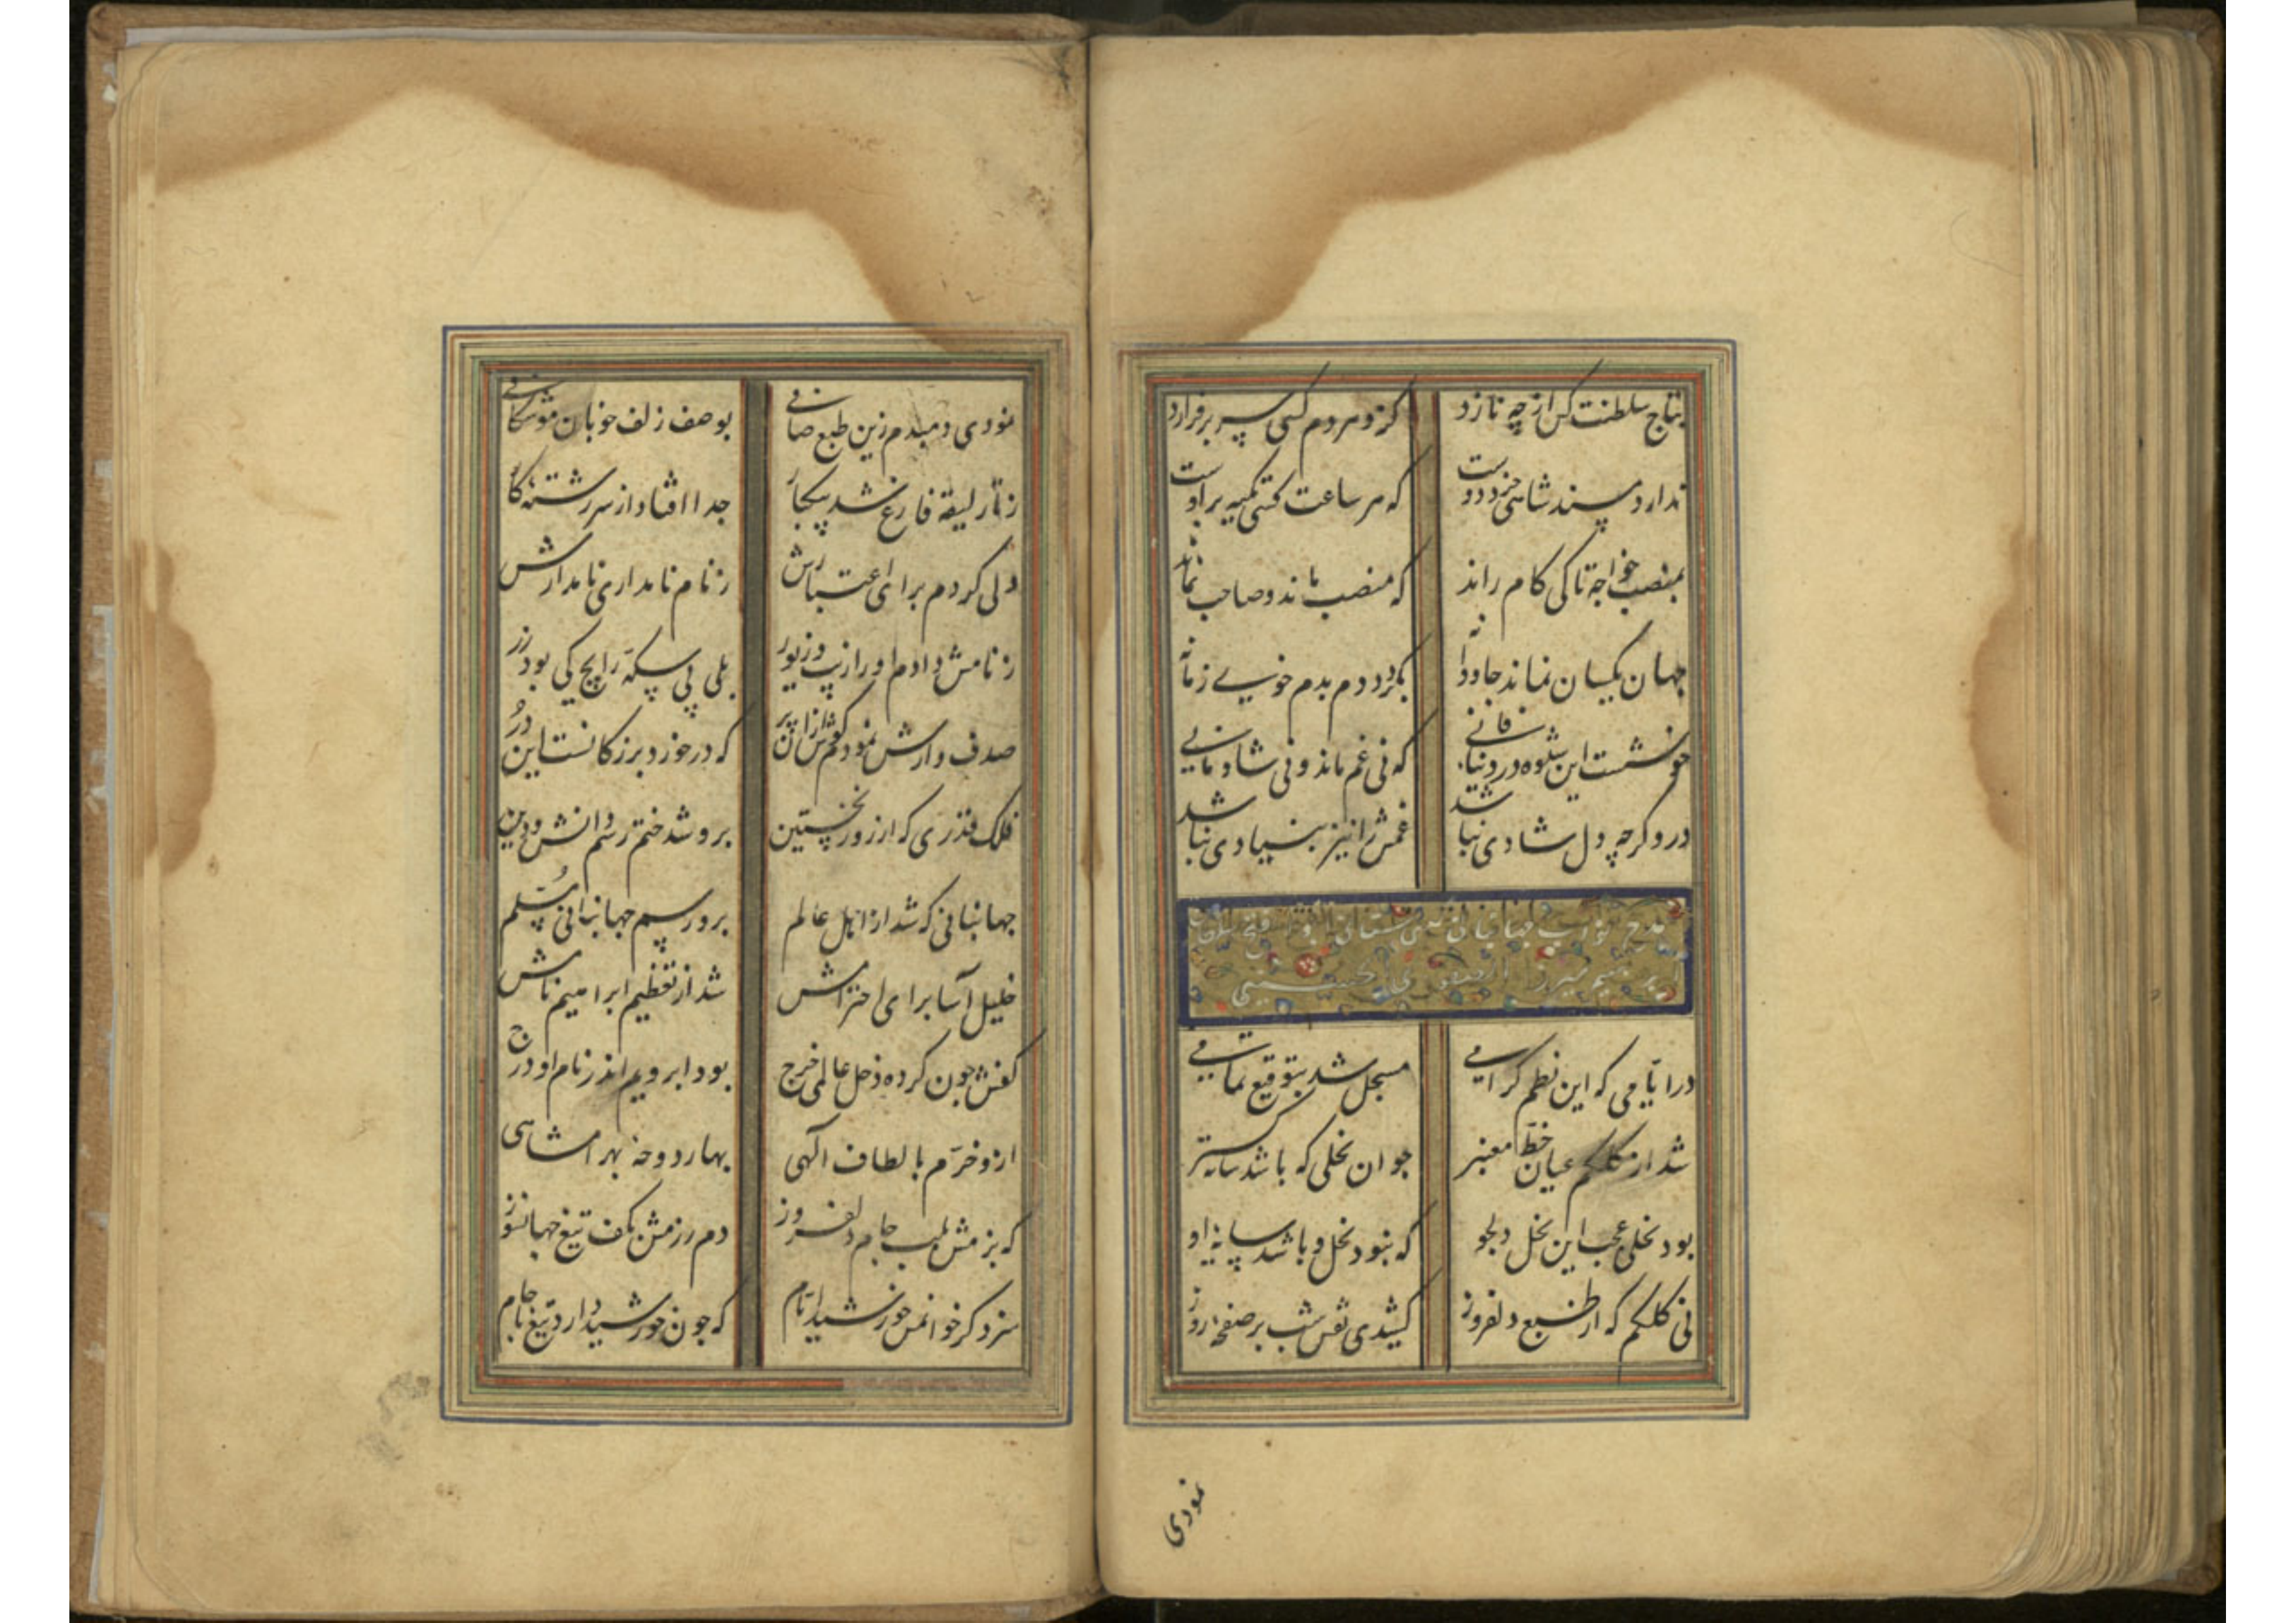 بتاج سلطنت کس از چه نازد کزو هر دم کسی سر برفرازد
ندارد پسند شاهی خرد دوست که هر ساعت کسی تکیه بر اوست
بمنصب خواجه تا کی کام راند که منصب ماند و صاحب نماند
جهان یکسان نماند جاودانه بگردد دم بدم خوی زمانه
خوشست این شیوه در دنیای فانی که نی غم ماند و نی شادمانی
درو گرچه دل شادی نباشد غمش را نیز بنیادی نباشد
مدح نواب
ابراهیم میرزا الحسینی
در ایامی که این نظم گرامی مسجل شد بتوقیع تمامی
شد از کلکم عیان خط معنبر جوان نخلی که باشد سایه گستر
بود نخلی عجب این نخل دلجو که نبود نخل و باشد سایه او
نی کلکم که از طبع دلفروز کشیدی نقش شب بر صفحه روز
نمودی
نمودی دمبدم زین طبع صافی بوصف زلف خوبان موشکافی
ز تار لیقه فارغ شد بیکبار جدا افتاد از سر رشته کار
ولی کردم برای اعتبارش ز نام نامداری نامدارش
ز نامش دادم او را زیب و زیور بلی بی سکه رایج کی بود زر
صدف وارش نمودم گوش ازان پر که در خورد بزرگانست این در
فلک قدری که از روز نخستین برو شد ختم رسم دانش و دین
جهانبانی که شد از اهل عالم برو رسم جهانبانی مسلم
خلیل آسا برای احترامش شد از تعظیم ابراهیم نامش
کفش چون کرده دخل عالمی خرج بود ابر و یم اندر نام او درج
ازو خرم بالطاف الهی بهار دوحه بهرامشاهی
که بزمش بلب جام دلفروز دم رزمش بکف تیغ جهانسوز
سزد گر خوانمش خورشید ایام که چون خورشید دارد تیغ با جام